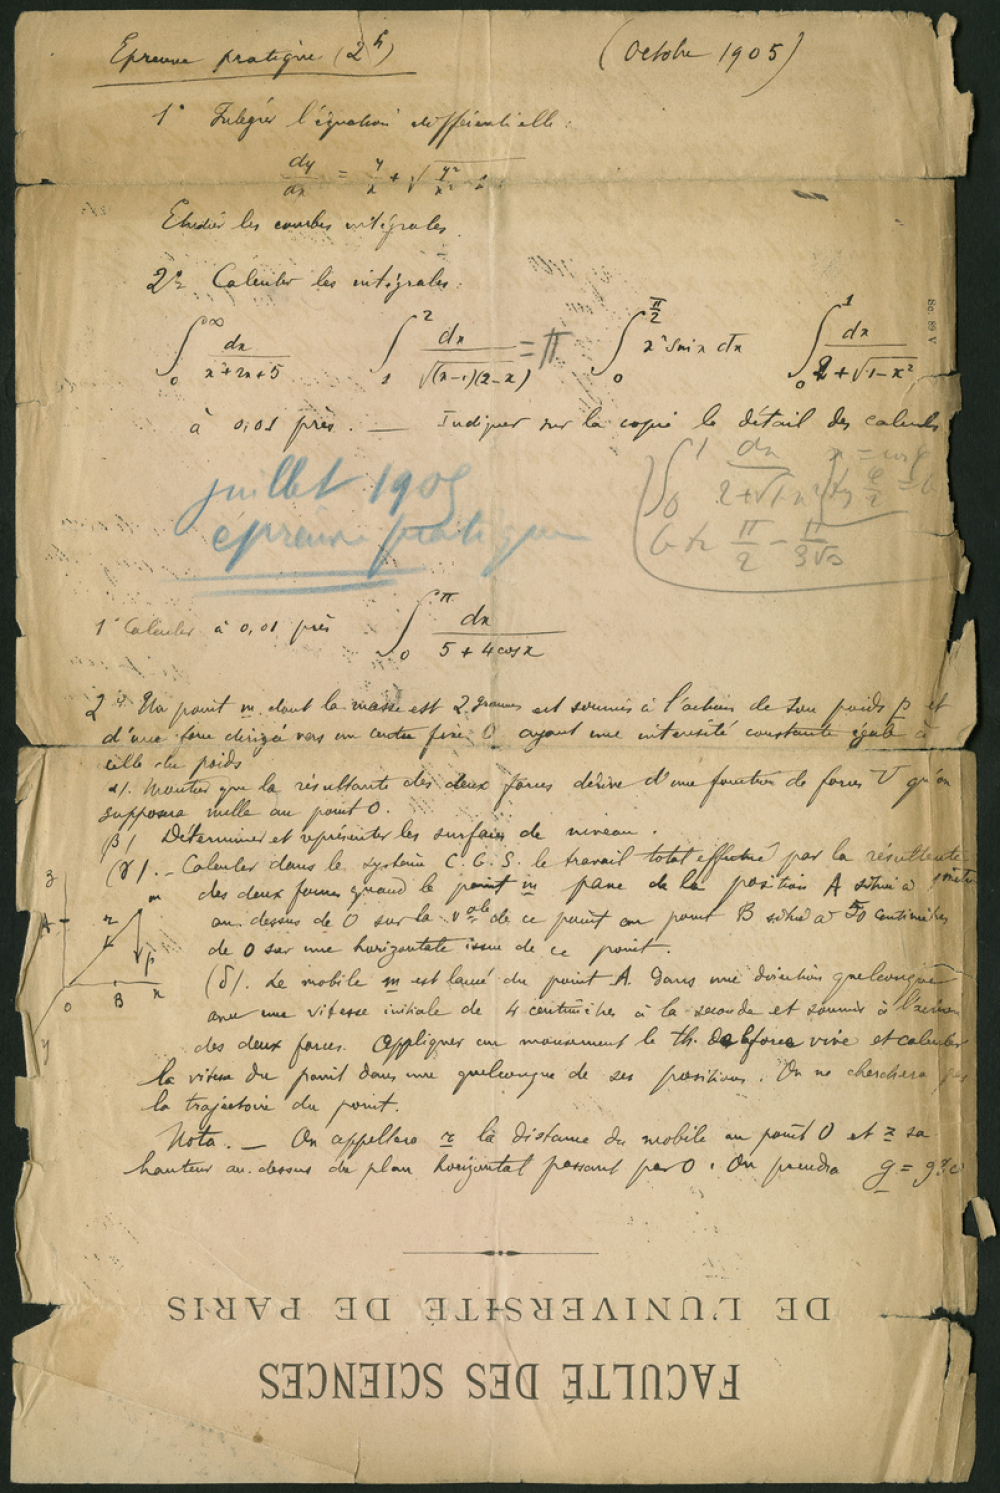 Epreuve pratique (2h) (Octobre 1905)
1° Intégrer l'équation différentielle :
dy/dx = y/x + √(y²/x²
Etudier les courbes intégrales.
2° Calculer les intégrales.
∫₀^∞ dx/(x²+2x+5) ∫₁² dx/√((x-1)(2-x)) = π ∫₀^(π/2) x² sin x dx ∫₀¹ dx/(2+√(1-x²))
à 0,01 près. — Indiquer sur la copie le détail des calculs
∫₀¹ dx/(2+√(1-x²)) x = cos φ tg φ/2 =
π/2 - π/(3√3)
juillet 1905
épreuve pratique
1° Calculer à 0,01 près ∫₀^π dx/(5 + 4cosx)
2° Un point m dont la masse est 2 grammes est soumis à l'action de son poids p et
d'une force dirigée vers un centre fixe O ayant une intensité constante égale à
celle du poids
α). Montrer que la résultante des deux forces dérive d'une fonction de forces U qu'on
supposera nulle au point O.
(β) Déterminer et représenter les surfaces de niveau.
(γ). - Calculer dans le système C.G.S. le travail total effectué par la résultante
des deux forces quand le point m passe de la position A situé à
au dessus de O sur la vcale de ce point au point B situé à 50 centimètres
de O sur une horizontale issue de ce point.
z
m
A
r
p
O B x
y
(δ). Le mobile m est lancé du point A dans une direction quelconque
avec une vitesse initiale de 4 centimètres à la seconde et soumis à l'action
des deux forces. Appliquer au mouvement le th. des forces vive et calculer
la vitesse du point dans une quelconque de ses positions. On ne cherchera pas
la trajectoire du point.
Nota. — On appellera r la distance du mobile au point O et z sa
hauteur au-dessus du plan horizontal passant par O. On prendra g =
DE L'UNIVERSITÉ DE PARIS
FACULTÉ DES SCIENCES